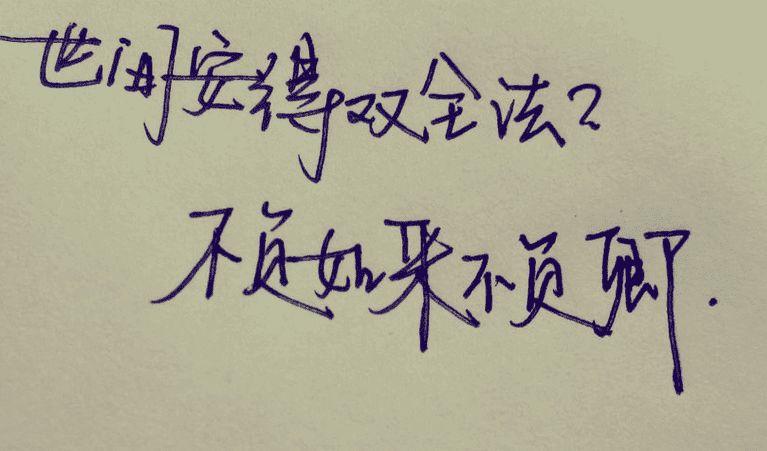 世间安得双全法?
不负如来不负卿.